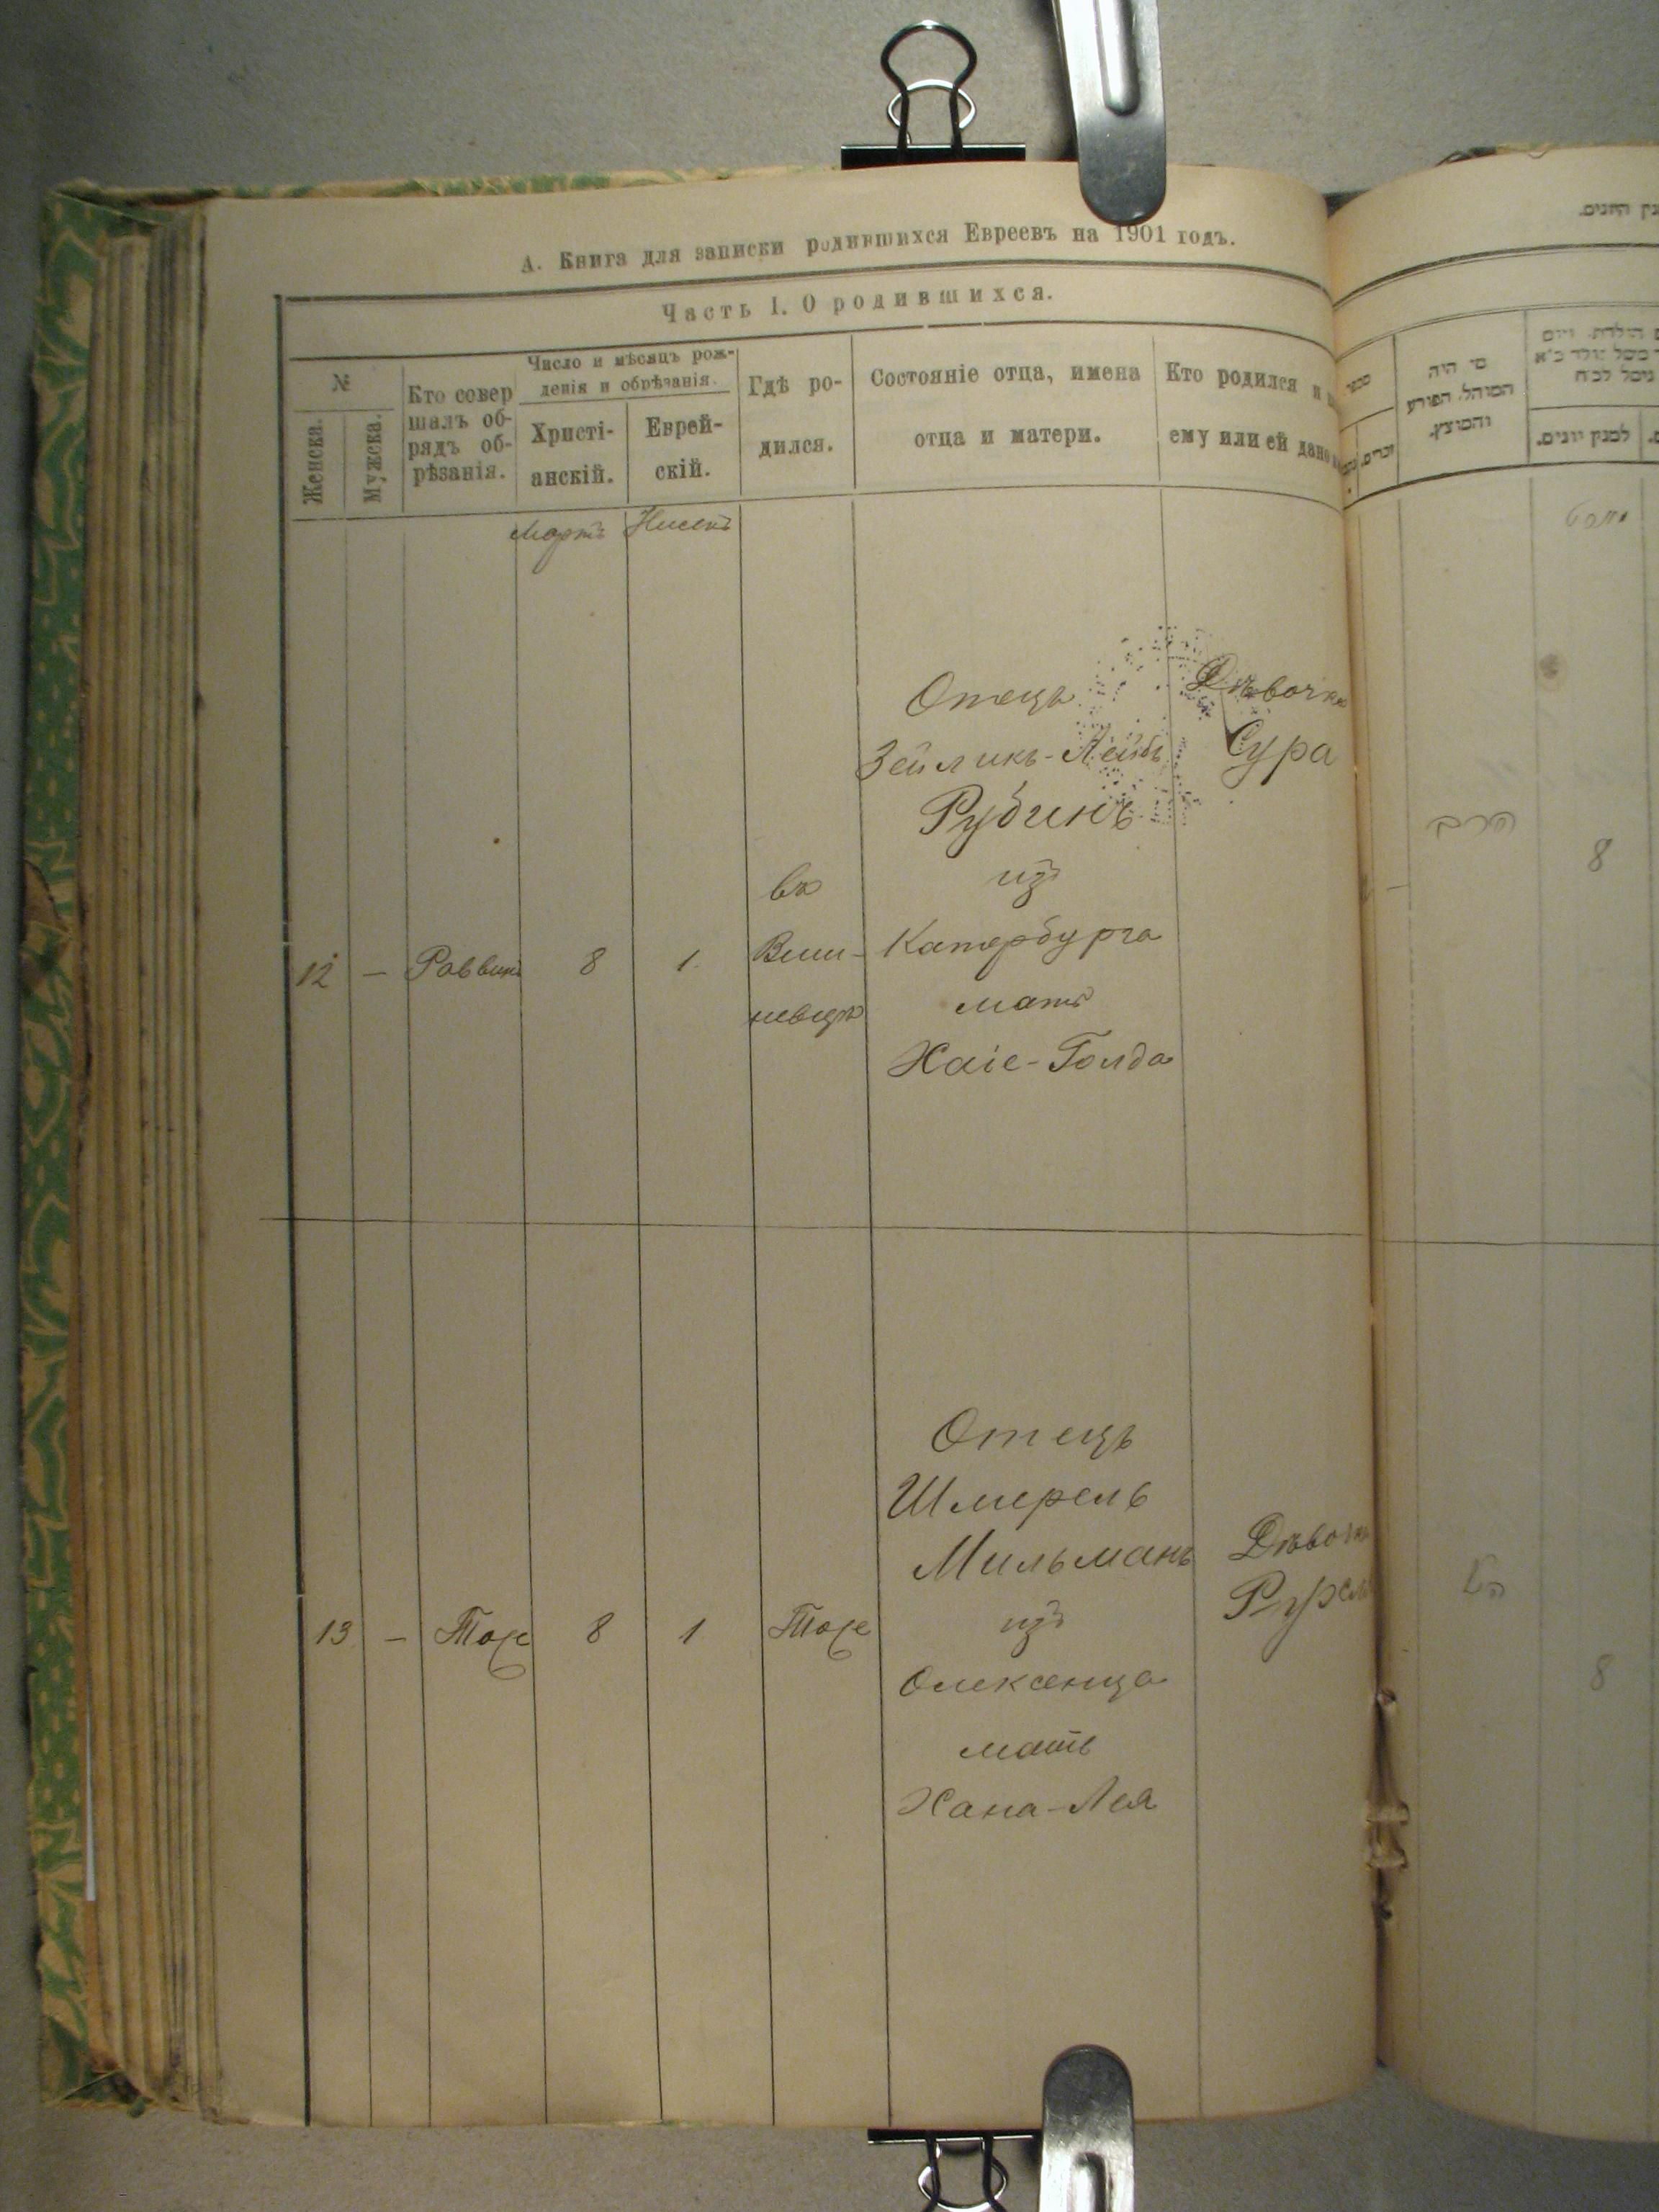 А. Книга для записки родившихся Евреевъ на 1901 годъ.
Часть I. О родившихся.
№
Женска.
Мужска.
Кто совер
шалъ об-
рядъ об-
рѣзанія.
Число и мѣсяцъ рож-
денія и обрѣзанія.
Христі-
анскій.
Еврей-
скій.
Гдѣ ро-
дился.
Состояніе отца, имена
отца и матери.
Кто родился и
ему или ей дано
Мартъ Нисонъ
12 — Раввинъ 8 1.
въ
Виш-
невцѣ
Отецъ
Зейликъ-Лейбъ
Рубинъ
изъ
Катербурга
мать
Хаіе-Голда
Дѣвочка
Сура
13 — Тоже 8 1 Тоже
Отецъ
Шмерель
Мильманъ
изъ
Олексенца
мать
Хана-Лея
מי היה
המוהל, הפורע
והמוצץ.
זכרים.
למנין יוונים.
הרב
8
8